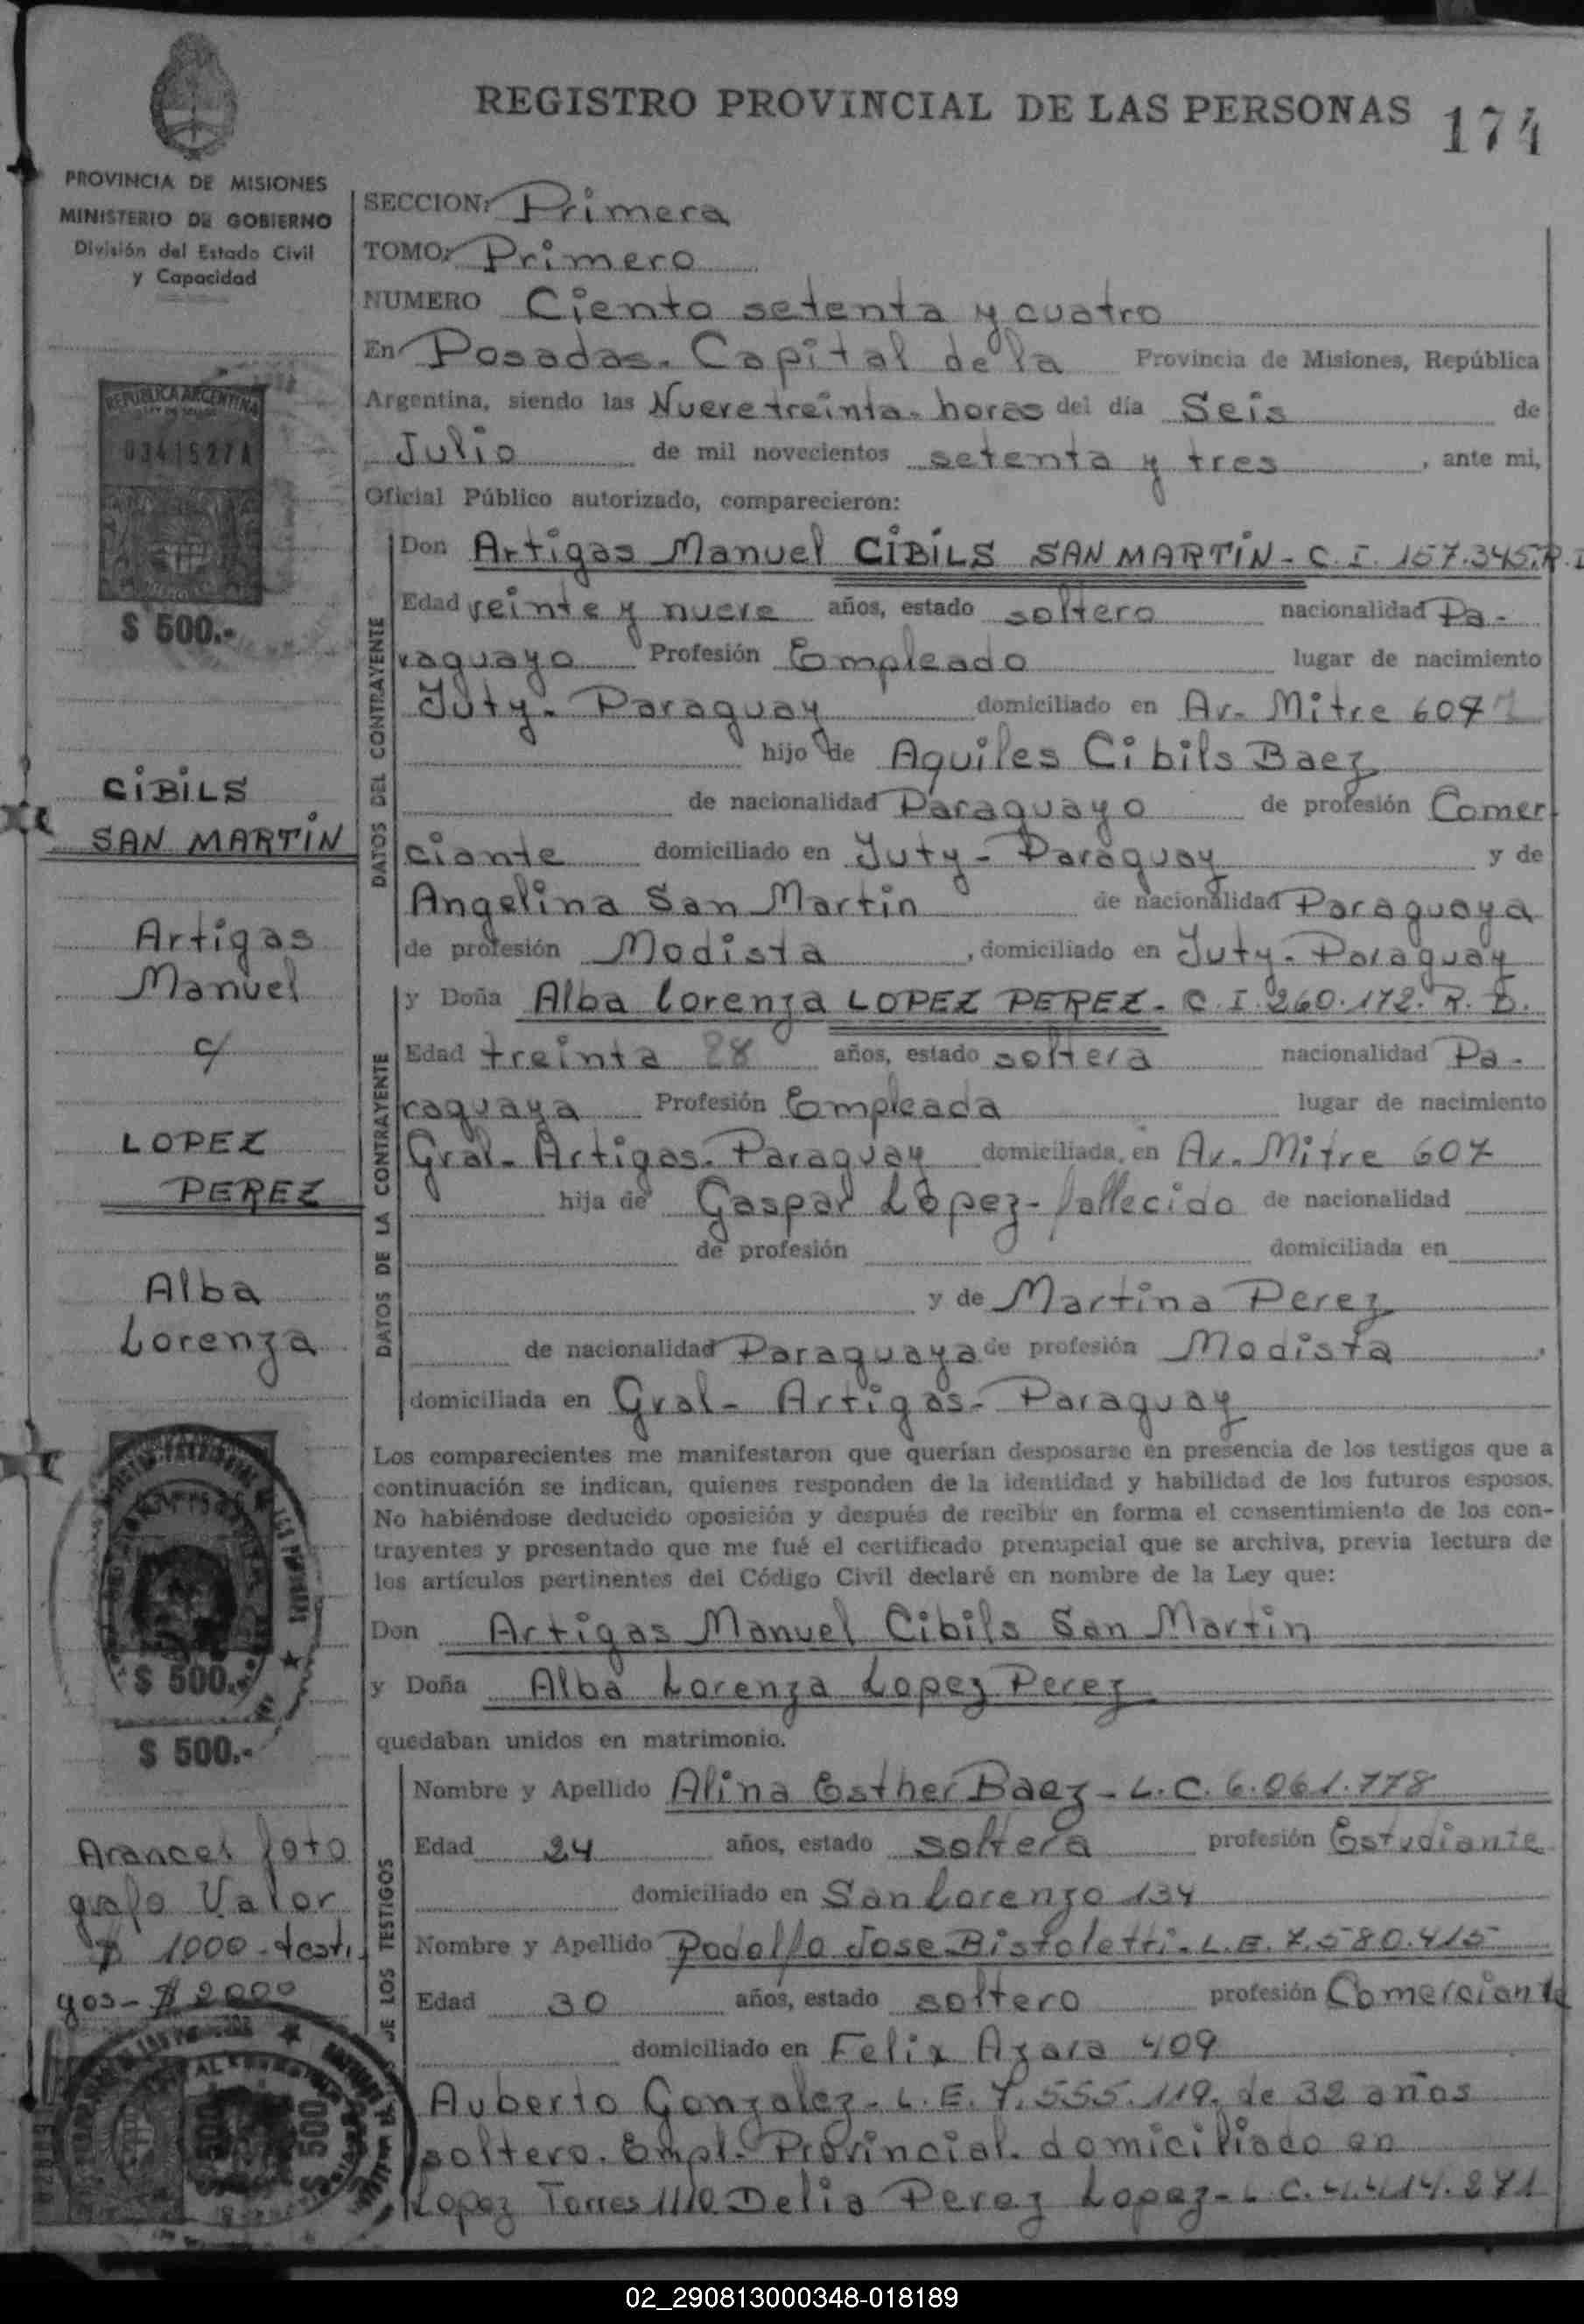 REGISTRO PROVINCIAL DE LAS PERSONAS 174
PROVINCIA DE MISIONES
MINISTERIO DE GOBIERNO
División del Estado Civil
y Capacidad
SECCION: Primera
TOMO: Primero
NUMERO Ciento setenta y cuatro
En Posadas. Capital de la Provincia de Misiones, República
Argentina, siendo las Nueve treinta. horas del día Seis de
Julio de mil novecientos setenta y tres, ante mi,
Oficial Público autorizado, comparecieron:
REPUBLICA ARGENTINA
0341527A
$ 500.-
DATOS DEL CONTRAYENTE
Don Artigas Manuel CIBILS SAN MARTIN - C. I. 157.345. R.
Edad veinte y nueve años, estado soltero nacionalidad Pa-
raguayo Profesión Empleado lugar de nacimiento
Yuty - Paraguay domiciliado en Av. Mitre 607
hijo de Aquiles Cibils Baez
de nacionalidad Paraguayo de profesión Comer
ciante domiciliado en Yuty - Paraguay y de
Angelina San Martin de nacionalidad Paraguaya
de profesión Modista, domiciliado en Yuty - Paraguay
CIBILS
SAN MARTIN
Artigas
Manuel
c/
LOPEZ
PEREZ
Alba
Lorenza
DATOS DE LA CONTRAYENTE
y Doña Alba Lorenza LOPEZ PEREZ - C. I. 260.172. R.
Edad treinta 28 años, estado soltera nacionalidad Pa-
raguaya Profesión Empleada lugar de nacimiento
Gral - Artigas. Paraguay domiciliada en Av. Mitre 607
hija de Gaspar López - fallecido de nacionalidad
de profesión domiciliada en
y de Martina Perez
de nacionalidad Paraguaya de profesión Modista,
domiciliada en Gral - Artigas - Paraguay
Los comparecientes me manifestaron que querían desposarse en presencia de los testigos que a
continuación se indican, quienes responden de la identidad y habilidad de los futuros esposos.
No habiéndose deducido oposición y después de recibir en forma el consentimiento de los con-
trayentes y presentado que me fué el certificado prenupcial que se archiva, previa lectura de
los artículos pertinentes del Código Civil declaré en nombre de la Ley que:
Don Artigas Manuel Cibils San Martin
y Doña Alba Lorenza Lopez Perez
quedaban unidos en matrimonio.
$ 500.-
$ 500.-
DE LOS TESTIGOS
Nombre y Apellido Alina Esther Baez - L. C. 6.061.778
Edad 24 años, estado soltera profesión Estudiante
domiciliado en San Lorenzo 134
Nombre y Apellido Rodolfo Jose Bistoletti - L. E. 7.580.415
Edad 30 años, estado soltero profesión Comerciante
domiciliado en Felix Azara 409
Auberto Gonzalez - L. E. 7.555.119. de 32 años
soltero. Empl. Provincial. domiciliado en
Lopez Torres 1110 Delia Perez Lopez - L. C. 4.414.271
Arancel foto
grafo Valor
$ 1000 - testi
gos - $ 2000
$ 500
02_290813000348-018189